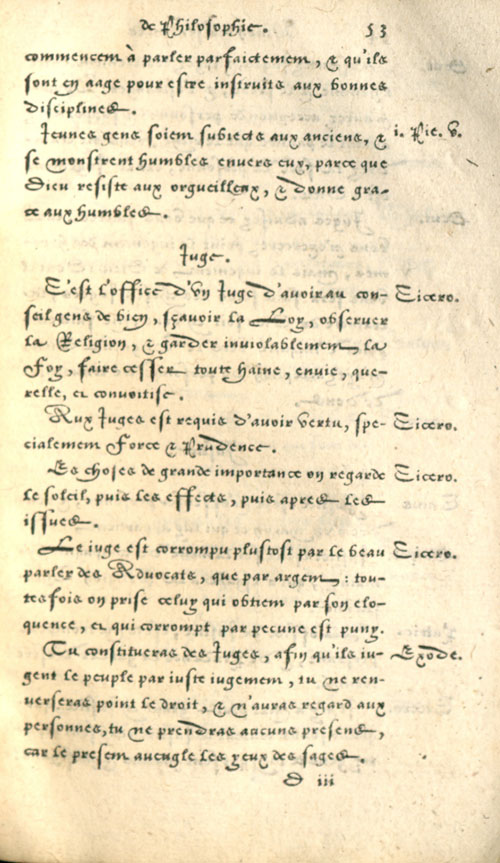 de Philosophie. 53
commencent à parler parfaictement, & qu'ils
sont en aage pour estre instruits aux bonnes
disciplines.
Jeunes gens soient subiects aux anciens, & i. Pie. v.
se monstrent humbles envers eux, parce que
Dieu resiste aux orgueilleux, & donne gra-
ce aux humbles.
Juge.
C'est l'office d'un Juge d'avoir au con- Cicero.
seil gens de bien, sçavoir la Loy, observer
la Religion, & garder inviolablement, la
Foy, faire cesser toute haine, envie, que-
relle, et convoitise.
Aux Juges est requis d'avoir vertu, spe- Cicero.
cialement Force & Prudence.
Es choses de grande importance on regarde Cicero.
le soleil, puis les effects, puis apres les
issues.
Le iuge est corrompu plustost par le beau Cicero.
parler des Advocats, que par argent, : tou-
tesfois on prise celuy qui obtient par son elo-
quence, et qui corrompt par pecune est puny.
Tu constitueras des Juges, afin qu'ils iu- Exode.
gent le peuple par iuste iugement, tu ne ren-
verseras point le droit, & n'auras regard aux
personnes, tu ne prendras aucuns presens,
car le present aveugle les yeux des sages.
D iii